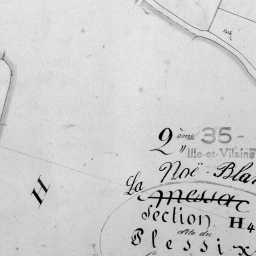 2ème 35-
" Ille-et-Vilaine
La Noë-Blan
Messac
H
Section H4
dite du
Blessix